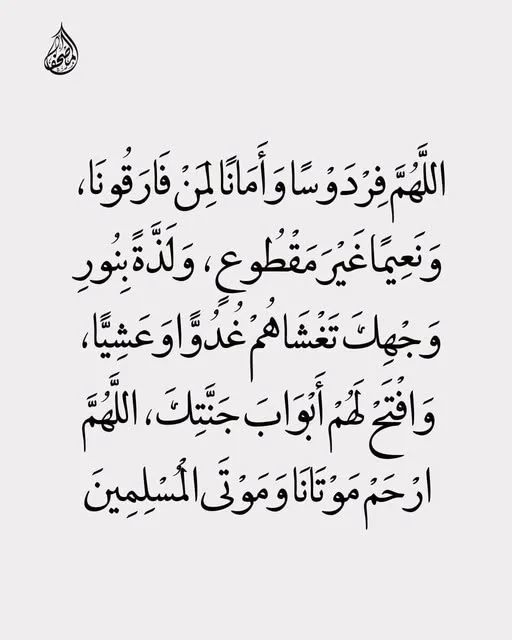 اللَّهُمَّ فِرْدَوْسًا وَأَمَانًا لِمَنْ فَارَقُونَا،
وَنَعِيمًا غَيْرَ مَقْطُوعٍ، وَلَذَّةً بِنُورِ
وَجْهِكَ تَغْشَاهُمْ غُدُوًّا وَعَشِيًّا،
وَافْتَحْ لَهُمْ أَبْوَابَ جَنَّتِكَ، اللَّهُمَّ
ارْحَمْ مَوْتَانَا وَمَوْتَى الْمُسْلِمِينَ